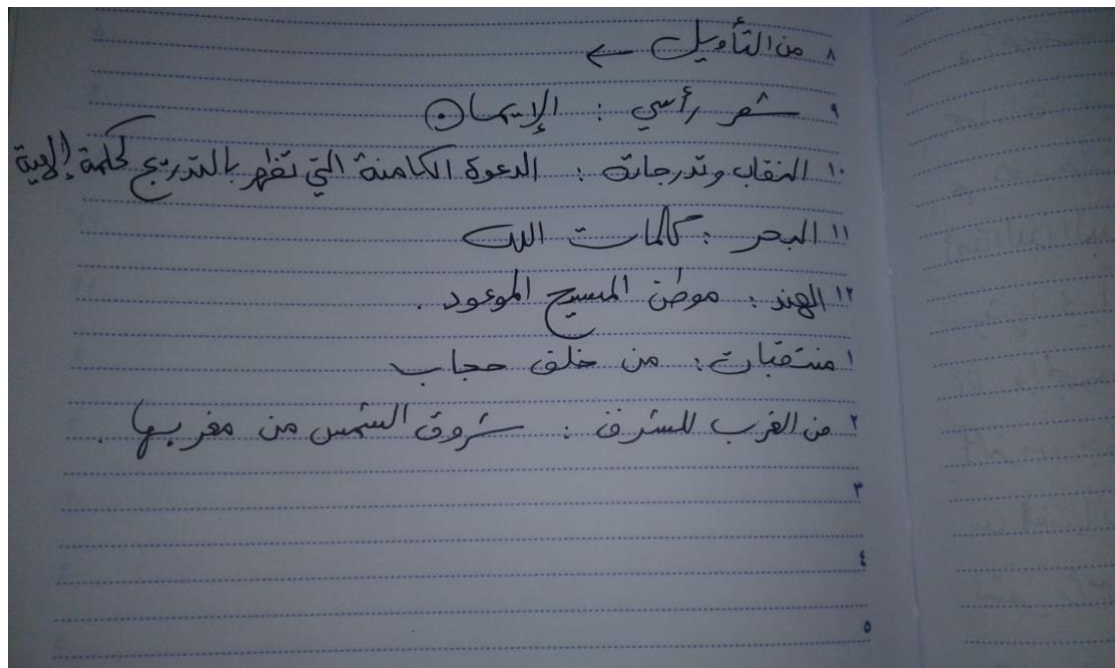 ٨ من التأويل ←
٩ شعر رأسي : الإيمان
١٠ النقاب وتدرجاته : الدعوة الكامنة التي تظهر بالتدريج لحكمة إلهية
١١ البحر : كلمات الله
١٢ الهند : موطن المسيح الموعود .
١ منتقبات : من خلف حجاب
٢ من الغرب للشرق : شروق الشمس من مغربها .
٣
٤
٥